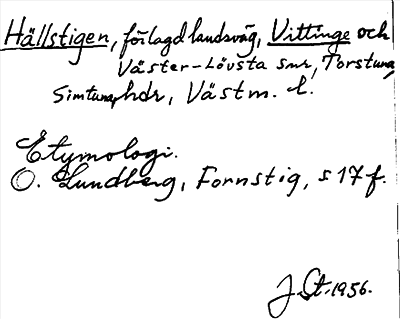 Hällstigen, förlagd landsväg, Vittinge och
Väster-Lövsta snr, Torstuna,
Simtuna, hdr, Västm. l.
Etymologi.
O. Lundberg, Fornstig, s 17 f.
J. St. 1956.